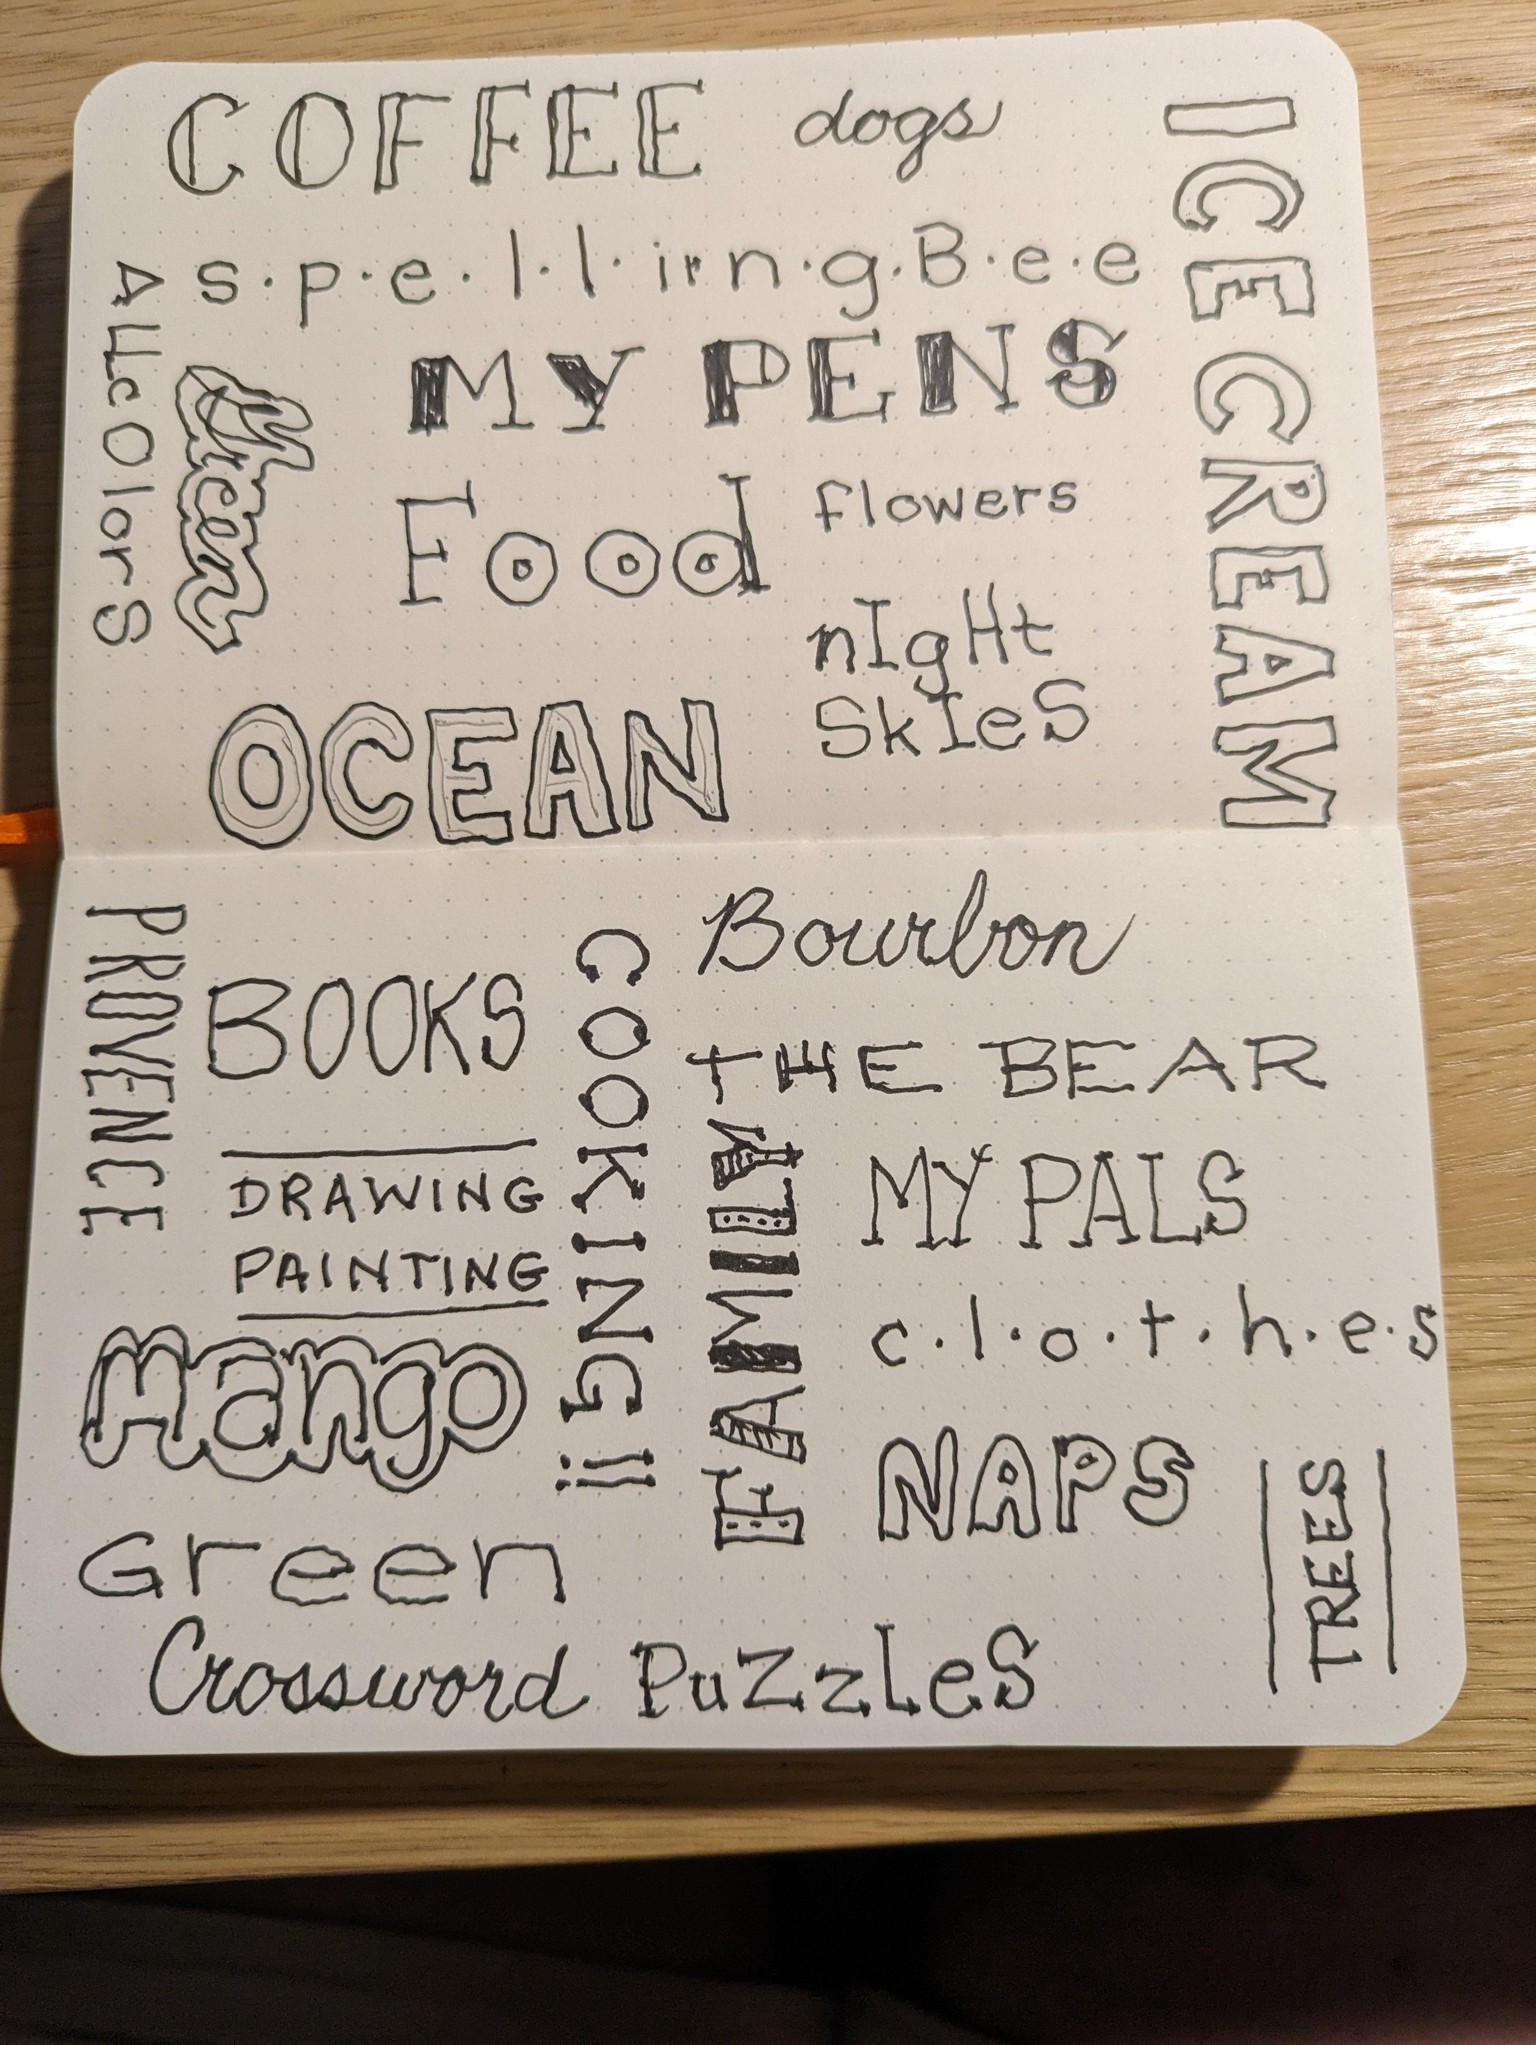 COFFEE
dogs
ICE CREAM
s.p.e.l.l.i.n.g.Bee
ALLcOlorS
MY PENS
Food
flowers
nIgHt
SkIeS
OCEAN
PROVENCE
BOOKS
COOKING!!
Bourbon
THE BEAR
FAMILY
MY PALS
DRAWING
PAINTING
c.l.o.t.h.e.s
Mango
NAPS
TREES
Green
Crossword PuZzLeS